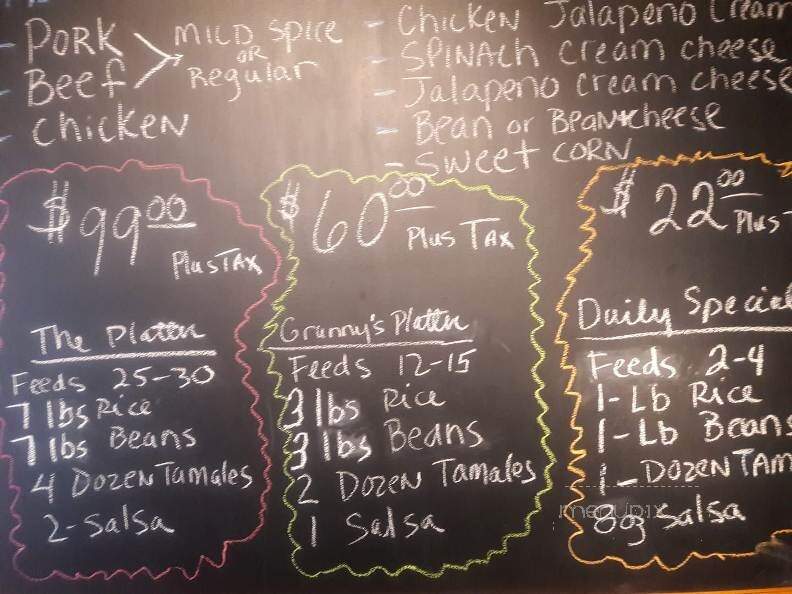 - PORK
Beef
- chicken
MILD SPICE
OR
Regular
- Chicken Jalapeno Cream
- SPINACH cream cheese
- Jalapeno cream cheese
- Bean or Bean+cheese
- SWEET CORN
$99.00
Plus TAX
The Platter
Feeds 25-30
7 lbs Rice
7 lbs Beans
4 Dozen Tamales
2-Salsa
$60.00
Plus TAX
Granny's Platter
Feeds 12-15
3 lbs Rice
3 lbs Beans
2 Dozen Tamales
1 Salsa
$22.00
Plus
Daily Special
Feeds 2-4
1-Lb Rice
1-Lb Beans
1-DOZEN TAM
8oz Salsa
menupix